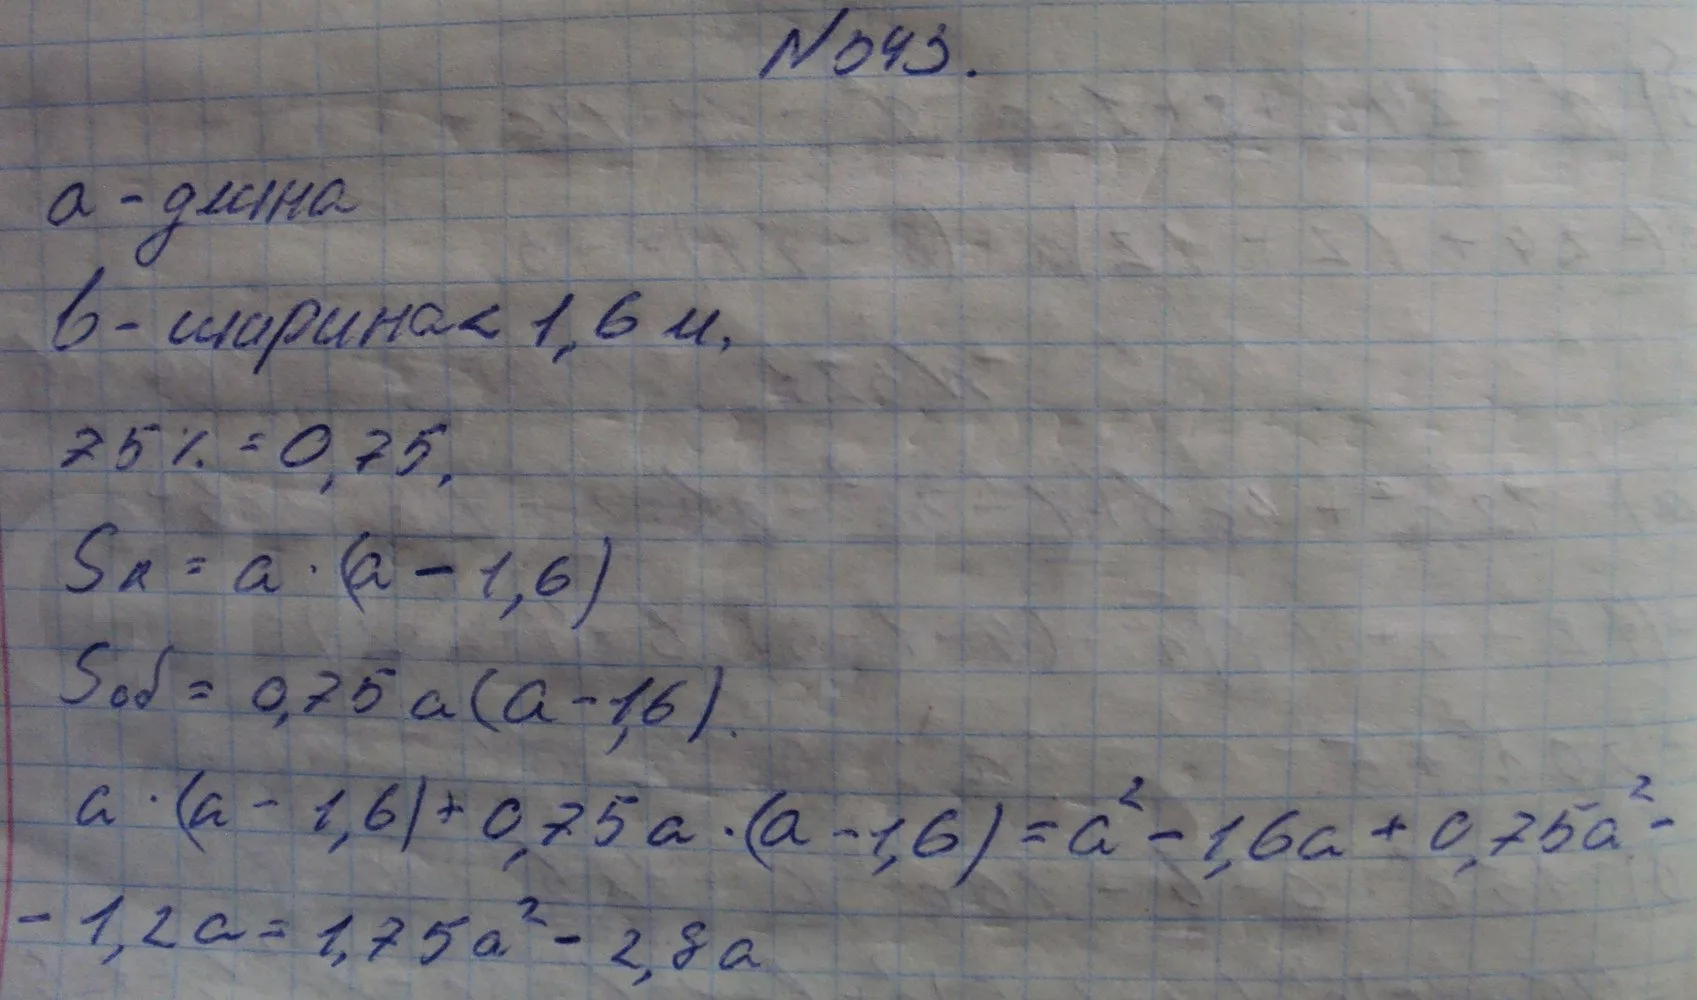 N 543.
a - длина
b - ширина < 1,6 м.
75% = 0,75.
Sк = a · (a - 1,6)
Sоб = 0,75 a (a - 1,6).
a · (a - 1,6) + 0,75 a · (a - 1,6) = a² - 1,6a + 0,75a² -
- 1,2a = 1,75a² - 2,8a